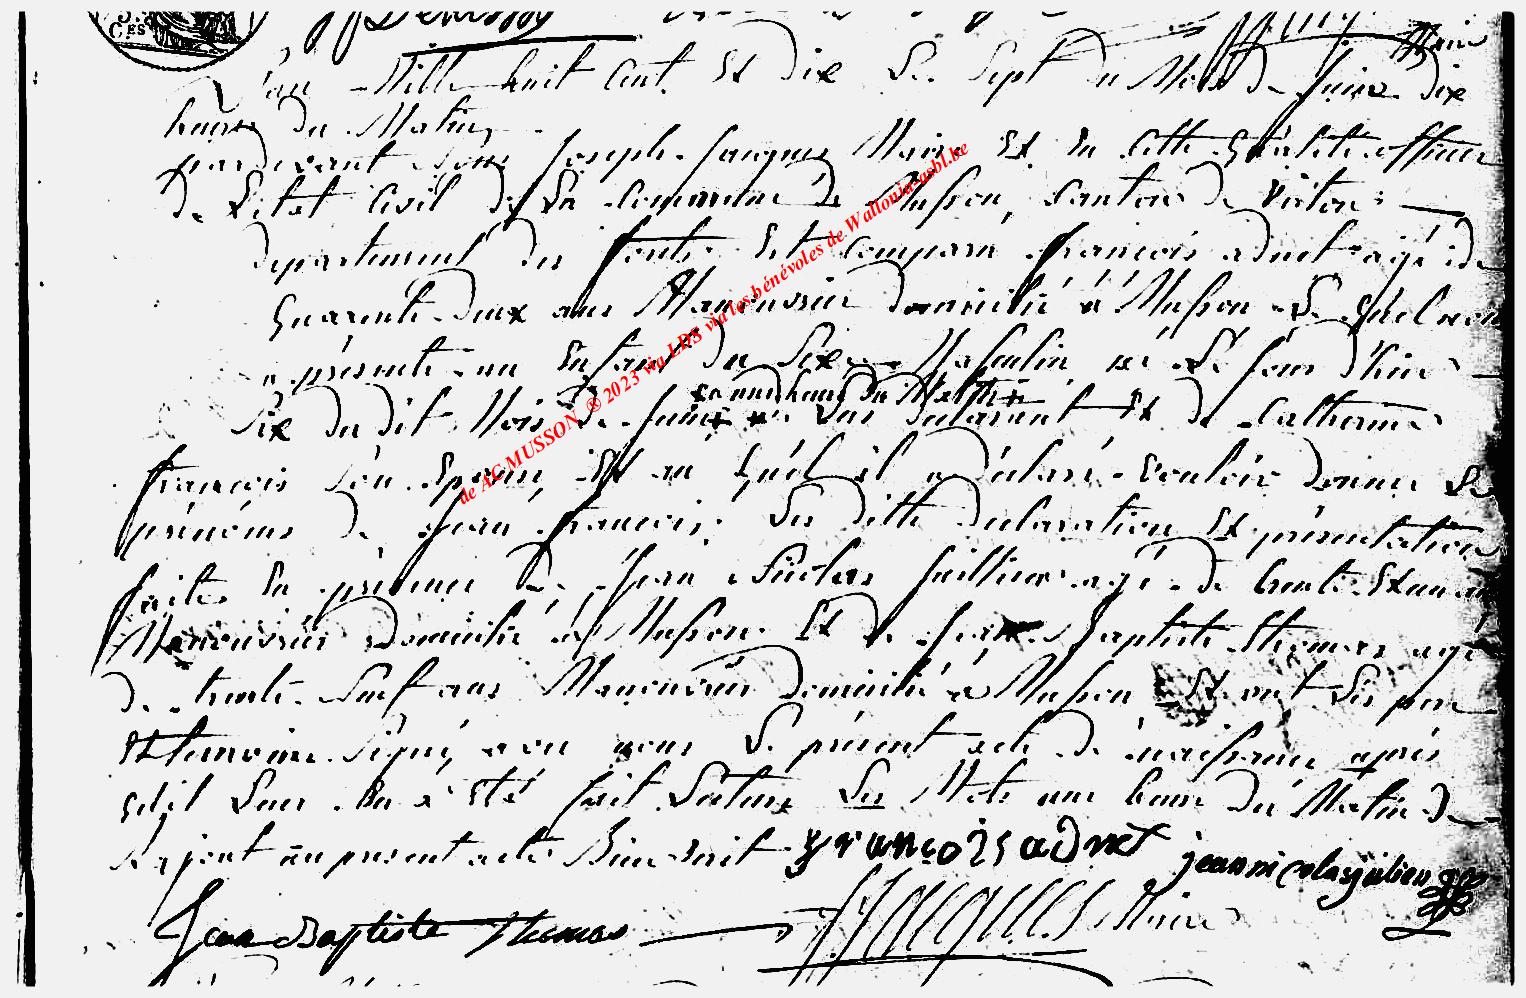 L'an Mille huit Cent Et dix Le Sept du Mois de Juin dix
heures du Matin
pardevant Nous Joseph Jacques Maire Et En Cette qualité officier
de L'Etat Civil de La Commune de Musson, Canton de Virton
departement des forêts Est Comparu françois adnet agé de
quarente deux ans Manouvrier domicilié a Musson Lequel nous
a présenté un Enfant du Sexe Masculin né Le Jour d'hier
a onze heures du Matin
Six du dit Mois de Juin de Lui declarant Et de Catherine
françois Son Epouse, Et au quel il a déclaré vouloir donner Les
prénoms de Jean françois. Les ditte declaration Et présentation
faites En présence de Jean Nicolas Juillien agé de trente Et un ans
Manouvrier domicilié a Musson Et de Jean Baptiste Thomas agé
de trente Neuf ans Manouvrier domicilié a Musson Et ont Les pere
Et temoins Signé, avec nous Le présent acte de naissance après
qu'il Leur En a Eté fait Lecture Les Mots onze heures du Matin
ajouté au present acte Bien Soit françois adnet
jean nicolas julien
Jean Baptiste Thomas JJacques Maire
de AC MUSSON ® 2023 via LDS via les bénévoles de Wallonia-asbl.be